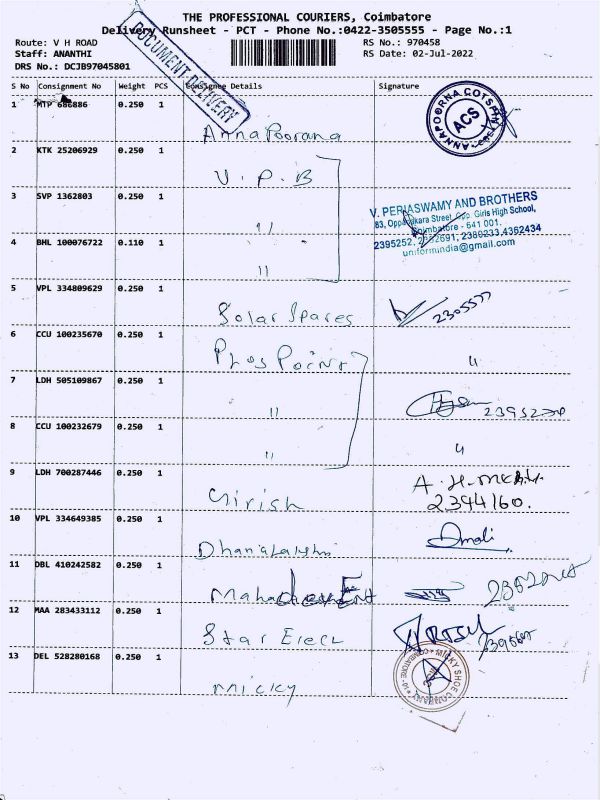 THE PROFESSIONAL COURIERS, Coimbatore
Delivery Runsheet - PCT - Phone No.:0422-3505555 - Page No.:1
Route: V H ROAD
RS No.: 970458
Staff: ANANTHI
RS Date: 02-Jul-2022
DRS No.: DCJB97045801
DOCUMENT DELIVERY
S No Consignment No Weight PCS Consignee Details Signature
1 MTP 686886 0.250 1
Annapoorana
ANNAPOORNA
ACS
2 KTK 25206929 0.250 1
V. P. B
3 SVP 1362803 0.250 1
"
V. PERIASWAMY AND BROTHERS
83, Oppanakara Street, Opp. Girls High School,
Coimbatore - 641 001.
2395252, 2380233, 4362434
uniformindia@gmail.com
4 BHL 100076722 0.110 1
"
5 VPL 334809629 0.250 1
Solar Spares
2305577
6 CCU 100235670 0.250 1
Plus Point
"
7 LDH 505109867 0.250 1
"
8 CCU 100232679 0.250 1
"
"
9 LDH 700287446 0.250 1
Girish
2394160.
10 VPL 334649385 0.250 1
Dhanalakshmi
11 DBL 410242582 0.250 1
12 MAA 283433112 0.250 1
Star Elecl
13 DEL 528280168 0.250 1
micky
MICKY SHOE COMPANY
COIMBATORE